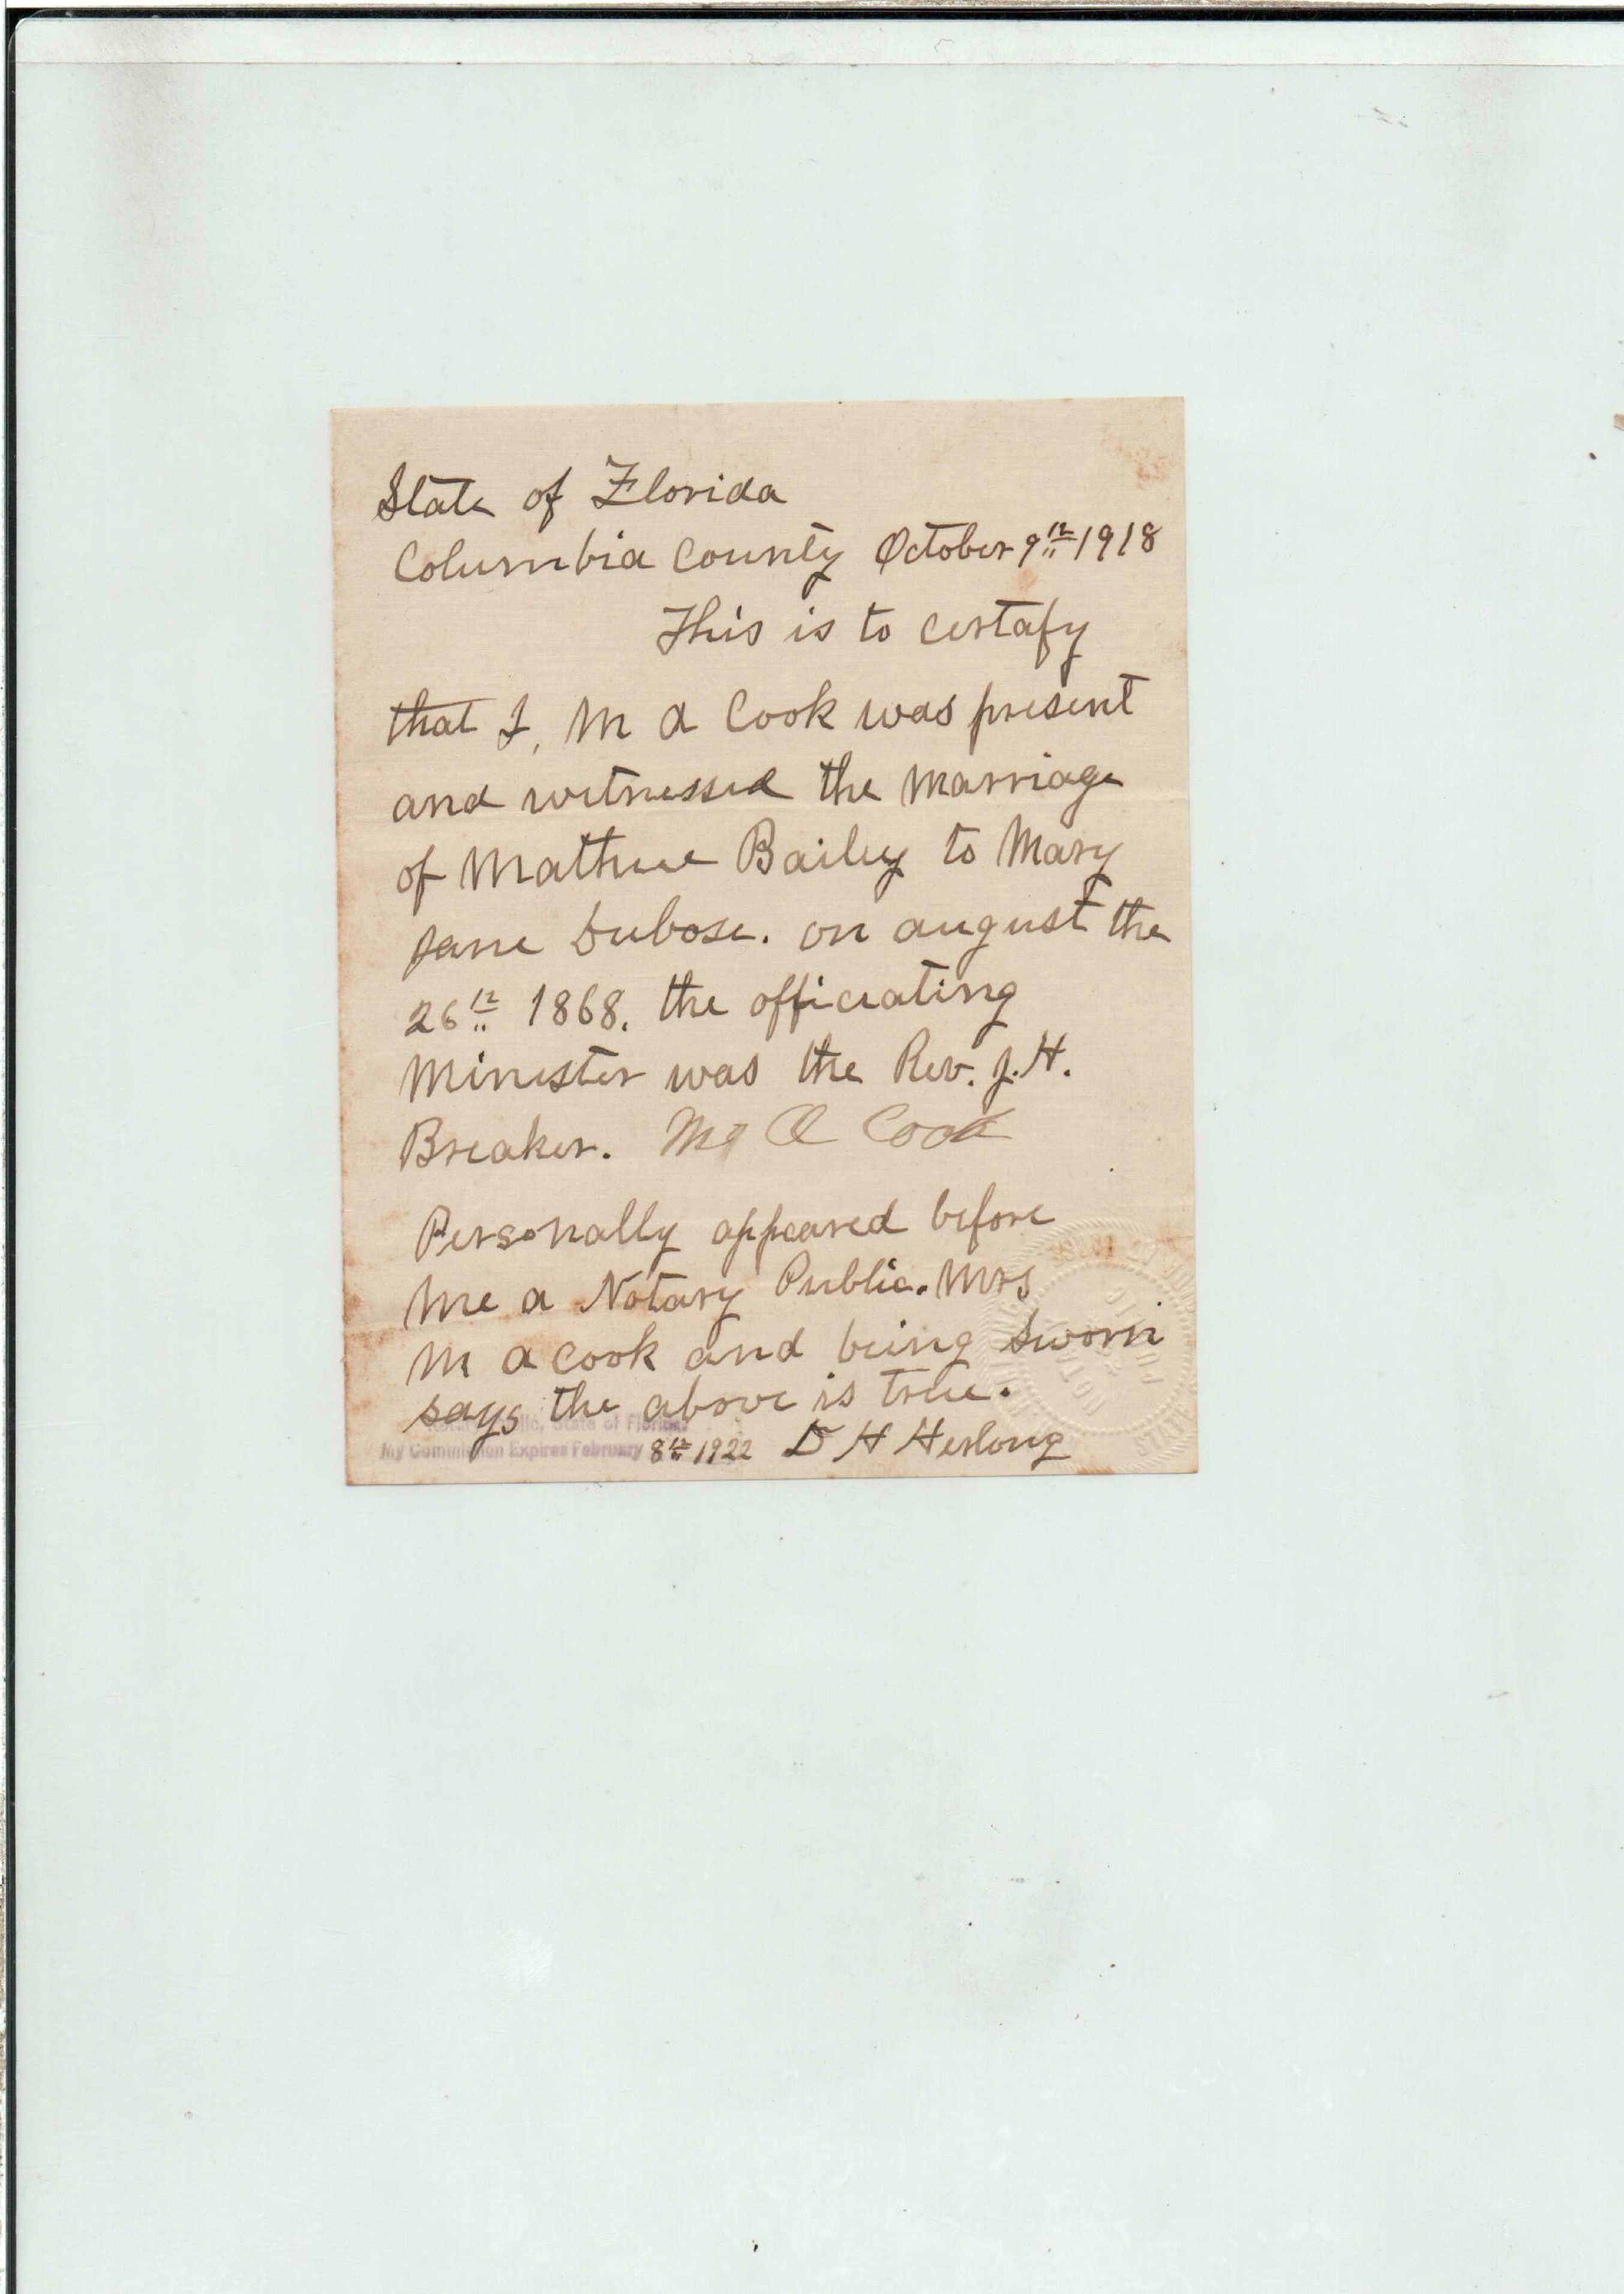 State of Florida
Columbia County October 9th 1918
This is to certafy
that I, M A Cook was present
and witnessed the marriage
of Mathue Bailey to Mary
Jane Dubose. on august the
26th 1868. the officiating
Minister was the Rev. J. H.
Breaker. M A Cook
Personally appeared before
me a Notary Public. Mrs
M A Cook and being sworn
says the above is true.
State of Florida
My Commission Expires February 8th 1922 D H Herlong
NOTARY PUBLIC